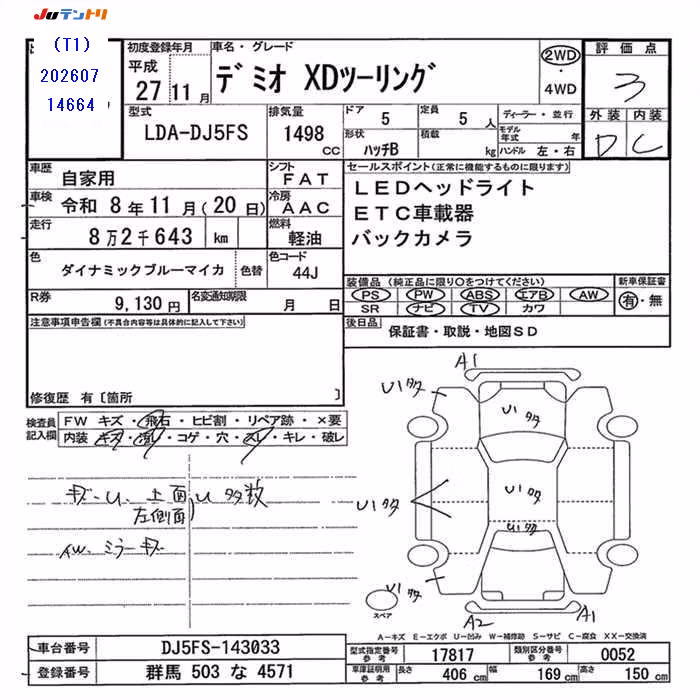 JUテントリ
(T1)
202607
14664
初度登録年月
平成
27 11月
車名・グレード
デミオ XDツーリング
2WD
・
4WD
評価点
3
外装 内装
D C
型式
LDA-DJ5FS
排気量
1498
CC
ドア
5
定員
5 人
ディーラー・並行
形状
ハッチB
積載
kg
モデル年式 年
ハンドル 左・右
車歴
自家用
シフト
FAT
車検
令和 8年 11月(20日)
冷房
AAC
走行
8万2千643 km
燃料
軽油
色
ダイナミックブルーマイカ
色替
色コード
44J
セールスポイント(正常に機能するものに限ります)
LEDヘッドライト
ETC車載器
バックカメラ
R券
9,130円
名変通知期限
月 日
装備品 (純正品に限り○をつけてください)
PS PW ABS エアB AW
SR ナビ TV カワ
新車保証書
有・無
後日品
保証書・取説・地図SD
注意事項申告欄(不具合内容等は具体的に記入して下さい)
修復歴 有〔箇所 〕
検査員
記入欄
FW キズ・飛石・ヒビ割・リペア跡・×要
内装 キズ・汚レ・コゲ・穴・スレ・キレ・破レ
キズ-U、上面
左側面
U 多数
AW、ミラーキズ
A1
U1タタ
U1タタ
U1タタ
U1タタ
U1タタ
U1タタ
A2
A1
スペア
A-キズ E-エクボ U-凹み W-補修跡 S-サビ C-腐食 XX-交換済
車台番号
DJ5FS-143033
登録番号
群馬 503 な 4571
型式指定番号
参考
17817
類別区分番号
参考
0052
車庫証明用
参考
長さ
406 cm
幅
169 cm
高さ
150 cm